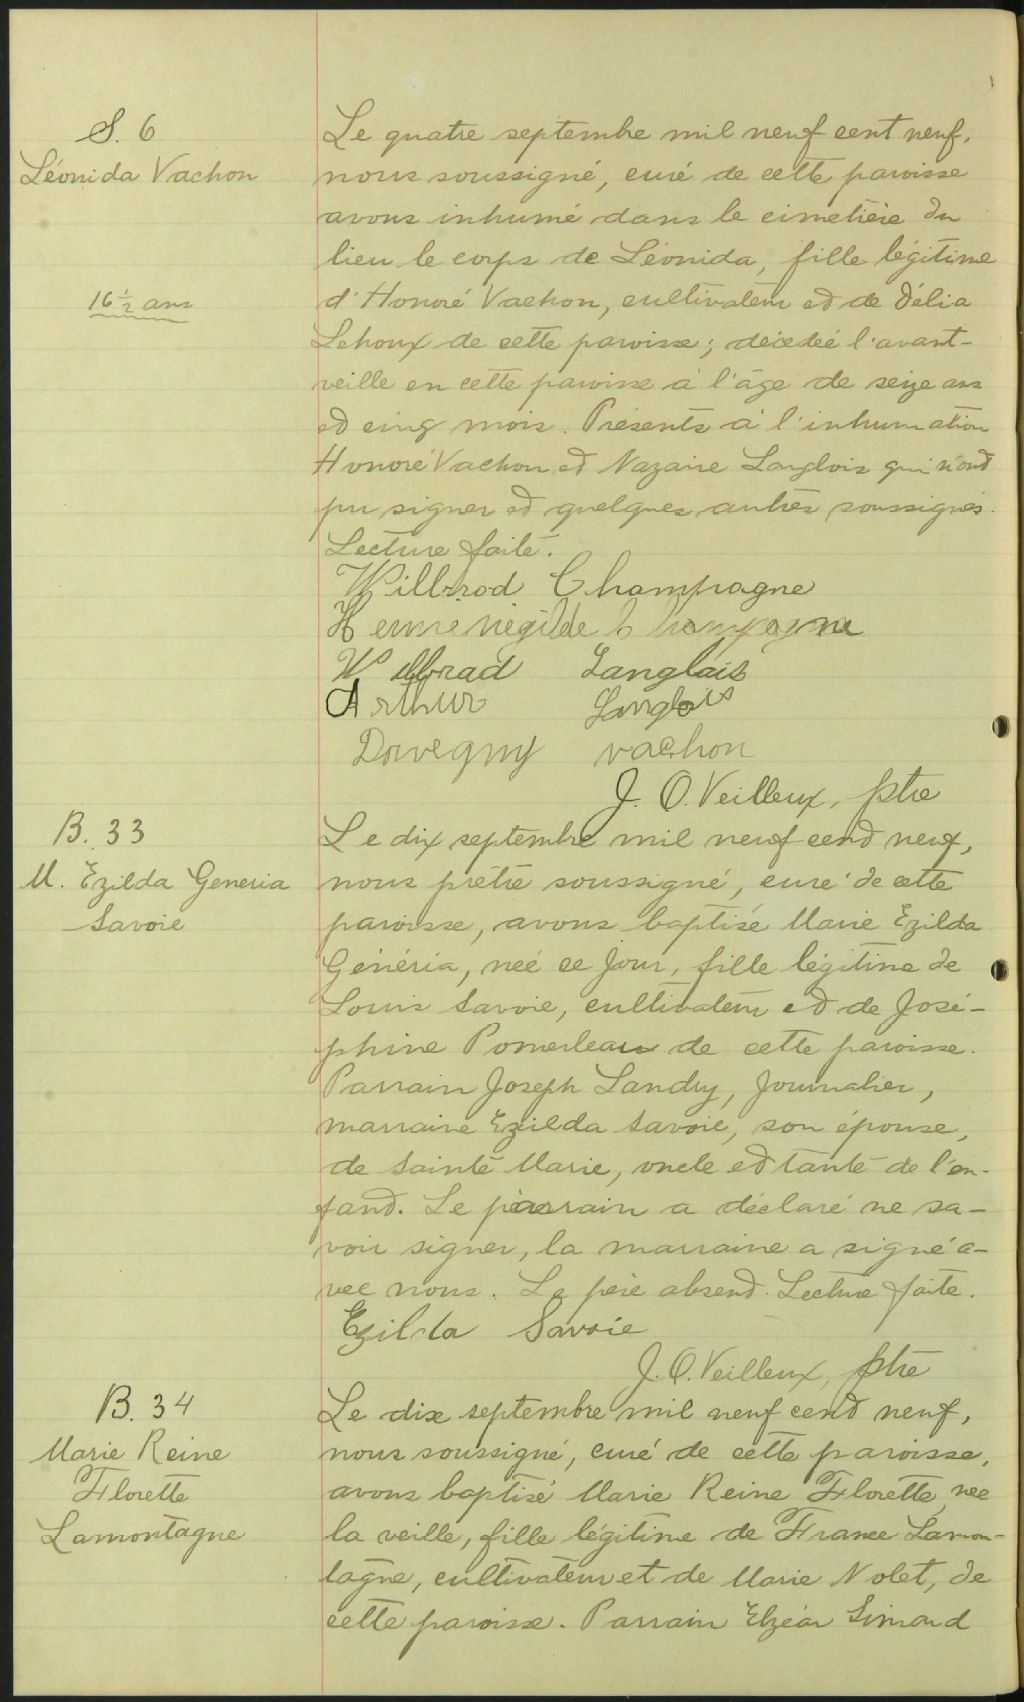 S. 6
Léonida Vachon
16 ½ ans
Le quatre septembre mil neuf cent neuf,
nous soussigné, curé de cette paroisse
avons inhumé dans le cimetière du
lieu le corps de Léonida, fille légitime
d'Honoré Vachon, cultivateur et de Délia
Lehoux de cette paroisse; décédée l'avant-
veille en cette paroisse à l'âge de seize ans
et cinq mois. Présents à l'inhumation
Honoré Vachon et Nazaire Langlois qui n'ont
pu signer et quelques autres soussignés.
Lecture faite.
Willbrod Champagne
Herménégilde Champagne
Willbrad Langlais
Arthur Langlois
Dorvegny vachon
J. O. Veilleux, ptre
B. 33
M. Ezilda Generia
Savoie
Le dix septembre mil neuf cent neuf,
nous prêtre soussigné, curé de cette
paroisse, avons baptisé Marie Ezilda
Généria, née ce jour, fille légitime de
Louis Savoie, cultivateur et de José-
phine Pomerleau de cette paroisse.
Parrain Joseph Landry, journalier,
marraine Ezilda Savoie, son épouse,
de Sainte Marie, oncle et tante de l'en-
fant. Le parrain a déclaré ne sa-
voir signer, la marraine a signé a-
vec nous. Le père absent. Lecture faite.
Ezilda Savoie
J. O. Veilleux, ptre
B. 34
Marie Reine
Florette
Lamontagne
Le dix septembre mil neuf cent neuf,
nous soussigné, curé de cette paroisse,
avons baptisé Marie Reine Florette née
la veille, fille légitime de France Lamon-
tagne, cultivateur et de Marie Nolet, de
cette paroisse. Parrain Elzéar Simard